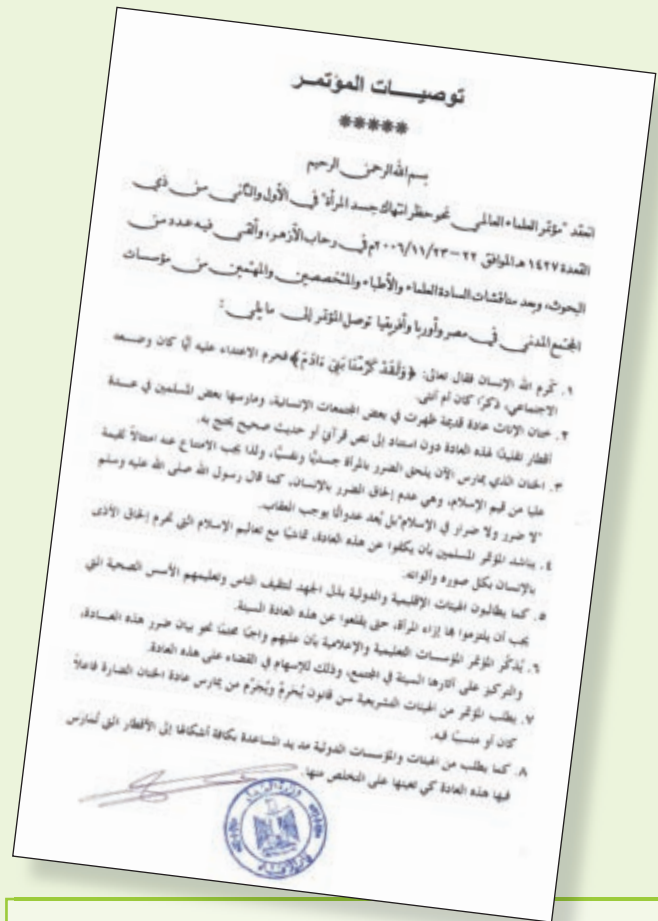 توصيـــات المؤتمـر
*****
بسم الله الرحمن الرحيم
انعقد "مؤتمر العلماء العالمي نحو حظر انتهاك جسد المرأة" في الأول والثاني من ذي
القعدة ١٤٢٧ هـ الموافق ٢٢-٢٠٠٦/١١/٢٣م في رحاب الأزهر، وألقى فيه عدد من
البحوث، وبعد مناقشات السادة العلماء والأطباء والمتخصصين والمهتمين من مؤسسات
المجتمع المدني في مصر وأوربا وأفريقيا توصل المؤتمر إلى ما يلي:
١. كرم الله الإنسان فقال تعالى: ﴿وَلَقَدْ كَرَّمْنَا بَنِي ءَادَمَ﴾ فحرم الاعتداء عليه أيًا كان وضـعه
الاجتماعي، ذكرًا كان أم أنثى.
٢. ختان الإناث عادة قديمة ظهرت في بعض المجتمعات الإنسانية، ومارسها بعض المسلمين في عـدة
أقطار تقليدًا لهذه العادة دون استناد إلى نص قرآني أو حديث صحيح يحتج به.
٣. الختان الذي يمارس الآن يلحق الضرر بالمرأة جسديًا ونفسيًا، ولذا يجب الامتناع عنه امتثالاً لقيمة
عليا من قيم الإسلام، وهي عدم إلحاق الضرر بالإنسان، كما قال رسول الله صلى الله عليه وسلم
"لا ضرر ولا ضرار في الإسلام" بل يُعد عدوانًا يوجب العقاب.
٤. يناشد المؤتمر المسلمين بأن يكفوا عن هذه العادة، تماشيًا مع تعاليم الإسلام التي تحرم إلحاق الأذى
بالإنسان بكل صوره وألوانه.
٥. كما يطالبون الهيئات الإقليمية والدولية بذل الجهد لتثقيف الناس وتعليمهم الأسس الصحية التي
يجب أن يلتزموا بها إزاء المرأة، حتى يقلعوا عن هذه العادة السيئة.
٦. يُذكَّر المؤتمر المؤسسات التعليمية والإعلامية بأن عليهم واجبًا محتمًا نحو بيان ضرر هذه العـــادة،
والتركيز على آثارها السيئة في المجتمع، وذلك للإسهام في القضاء على هذه العادة.
٧. يطلب المؤتمر من الهيئات التشريعية سن قانون يُحَرِّمُ ويُجَرِّم من يمارس عادة الختان الضارة فاعلاً
كان أو متسببًا فيه.
٨. كما يطلب من الهيئات والمؤسسات الدولية مد يد المساعدة بكافة أشكالها إلى الأقطار التي تُمَارَس
فيها هذه العادة كي تعينها على التخلص منها.